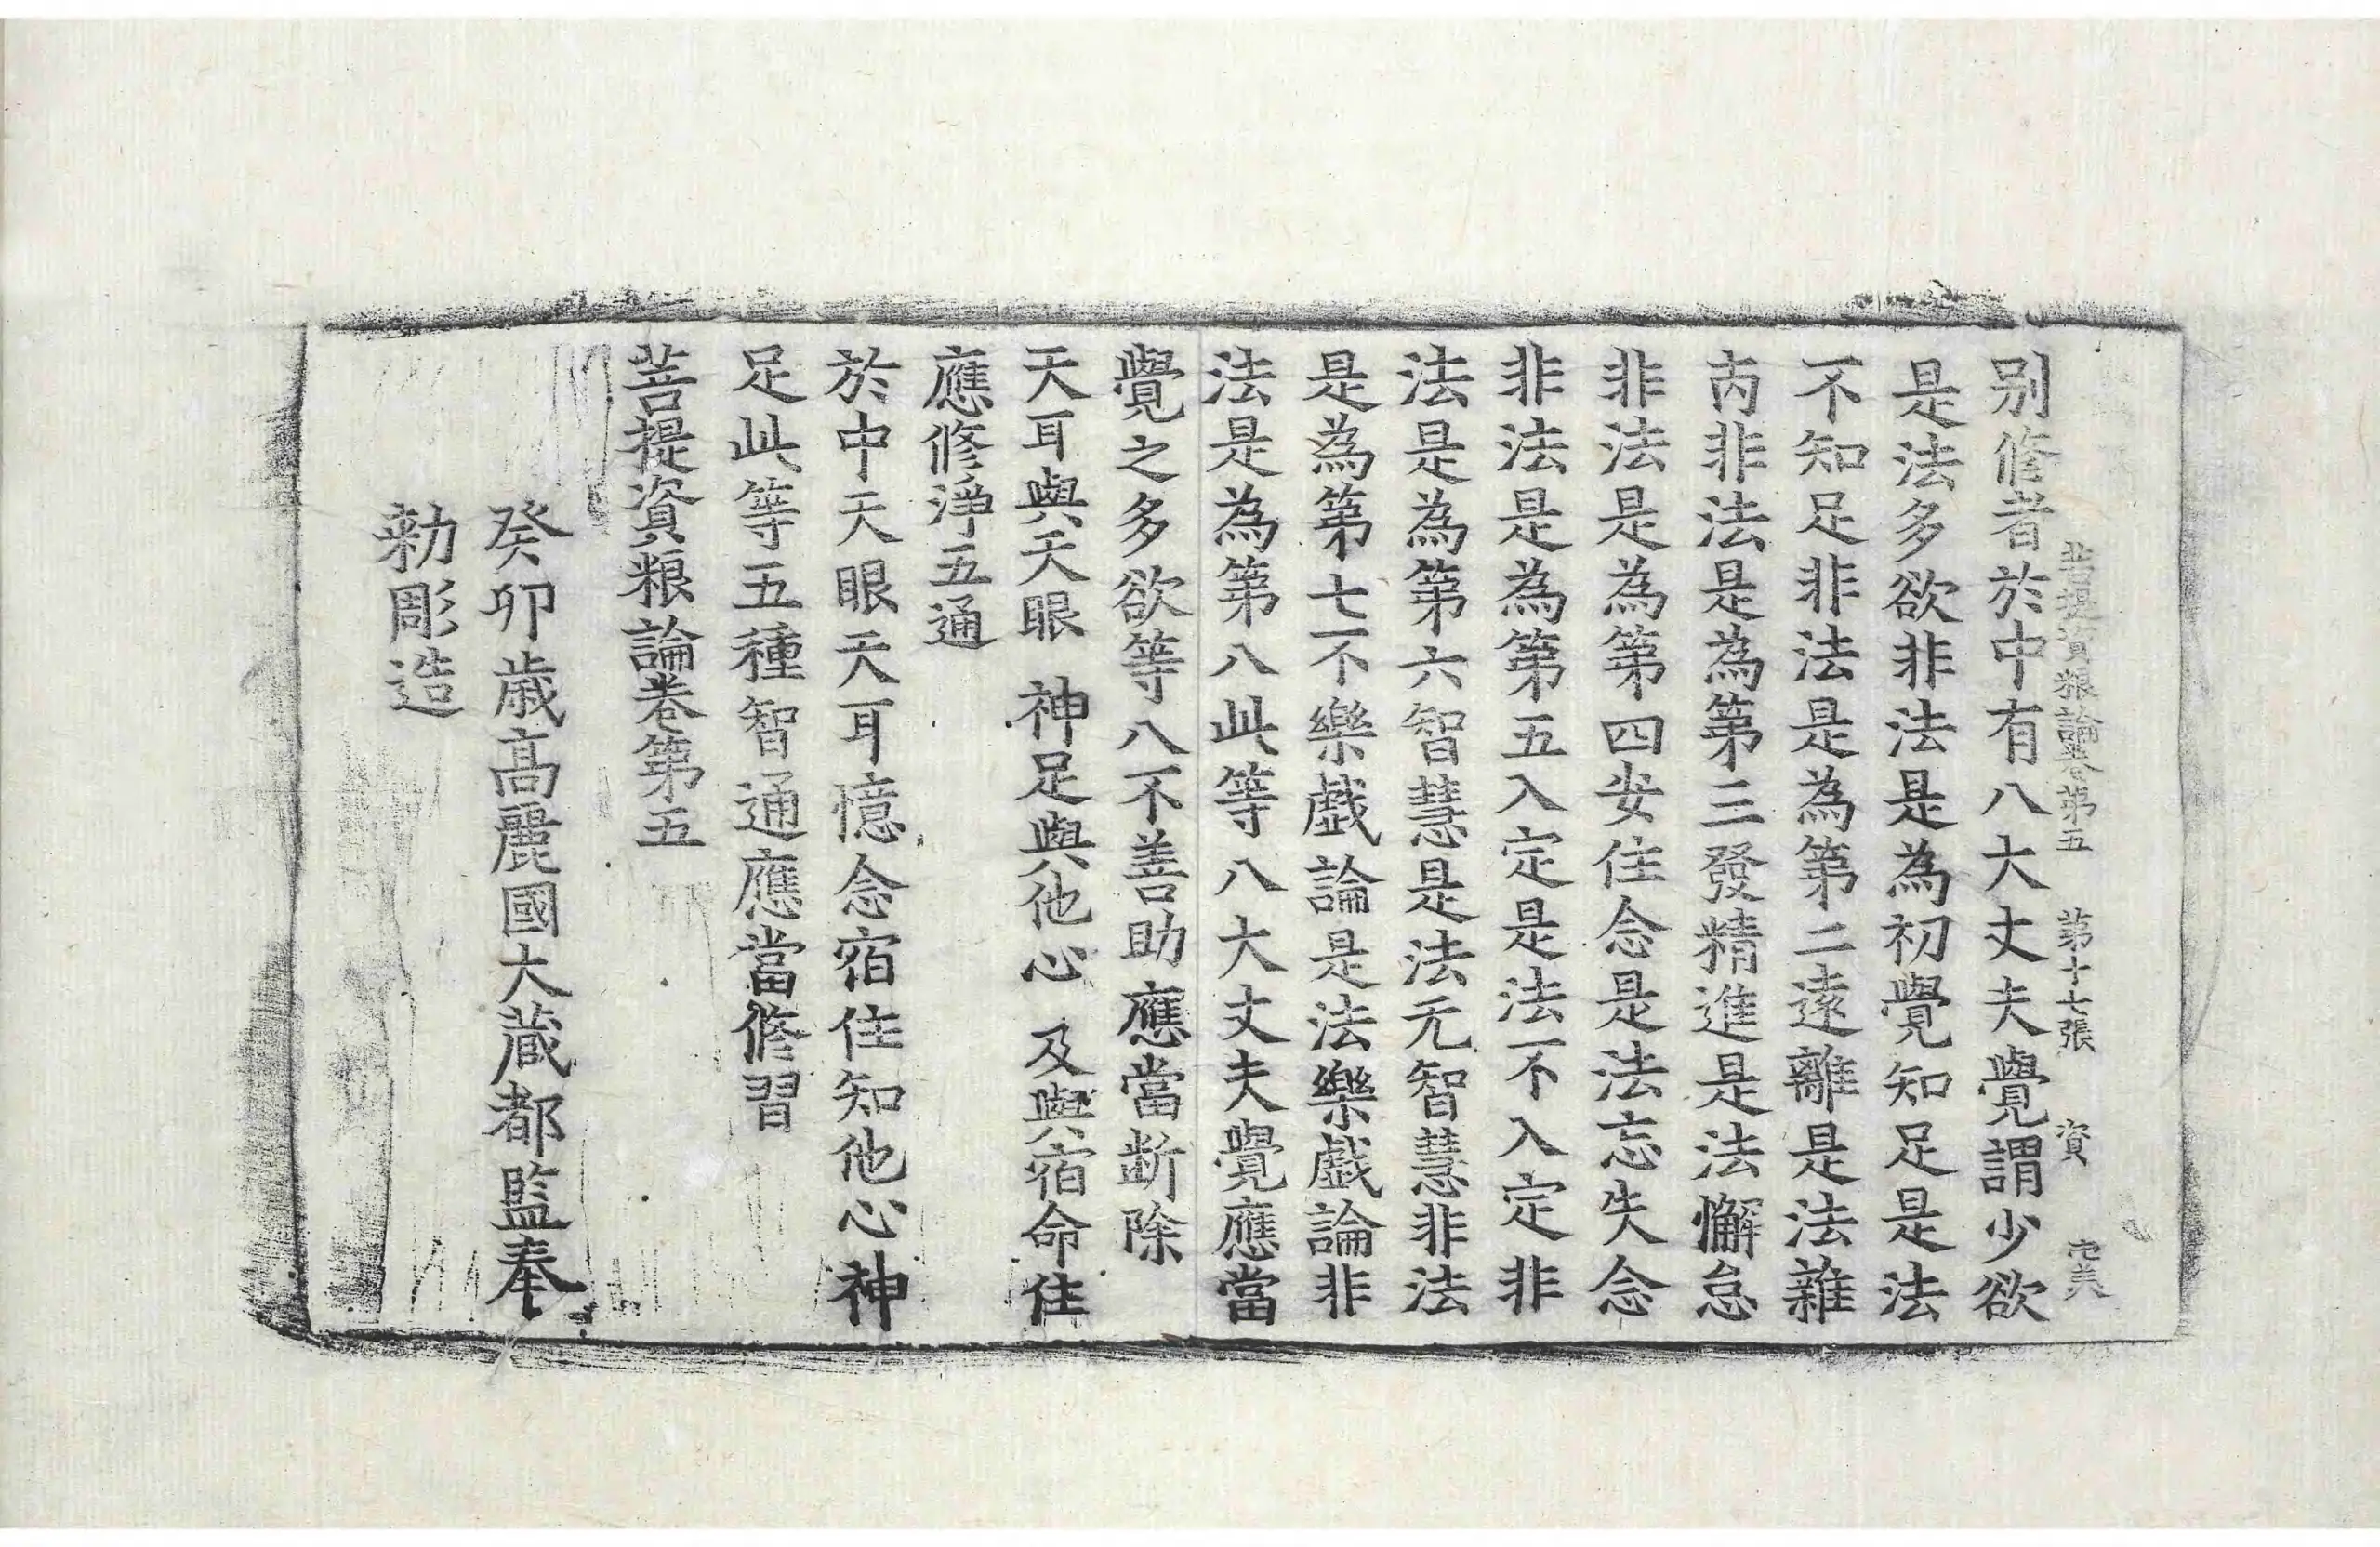 菩提資粮論卷第五 第十七張 資 宅美
别修者於中有八大丈夫覺謂少欲
是法多欲非法是為初覺知足是法
不知足非法是為第二遠離是法雜
丙非法是為第三發精進是法懈怠
非法是為第四安住念是法忘失念
非法是為第五入定是法不入定非
法是為第六智慧是法无智慧非法
是為第七不樂戲論是法樂戲論非
法是為第八此等八大丈夫覺應當
覺之多欲等八不善助應當断除
天耳與天眼 神足與他心 及與宿命住
應修淨五通
於中天眼天耳憶念宿住知他心神
足此等五種智通應當修習
菩提資粮論卷第五
癸卯歲高麗國大藏都監奉
勑彫造